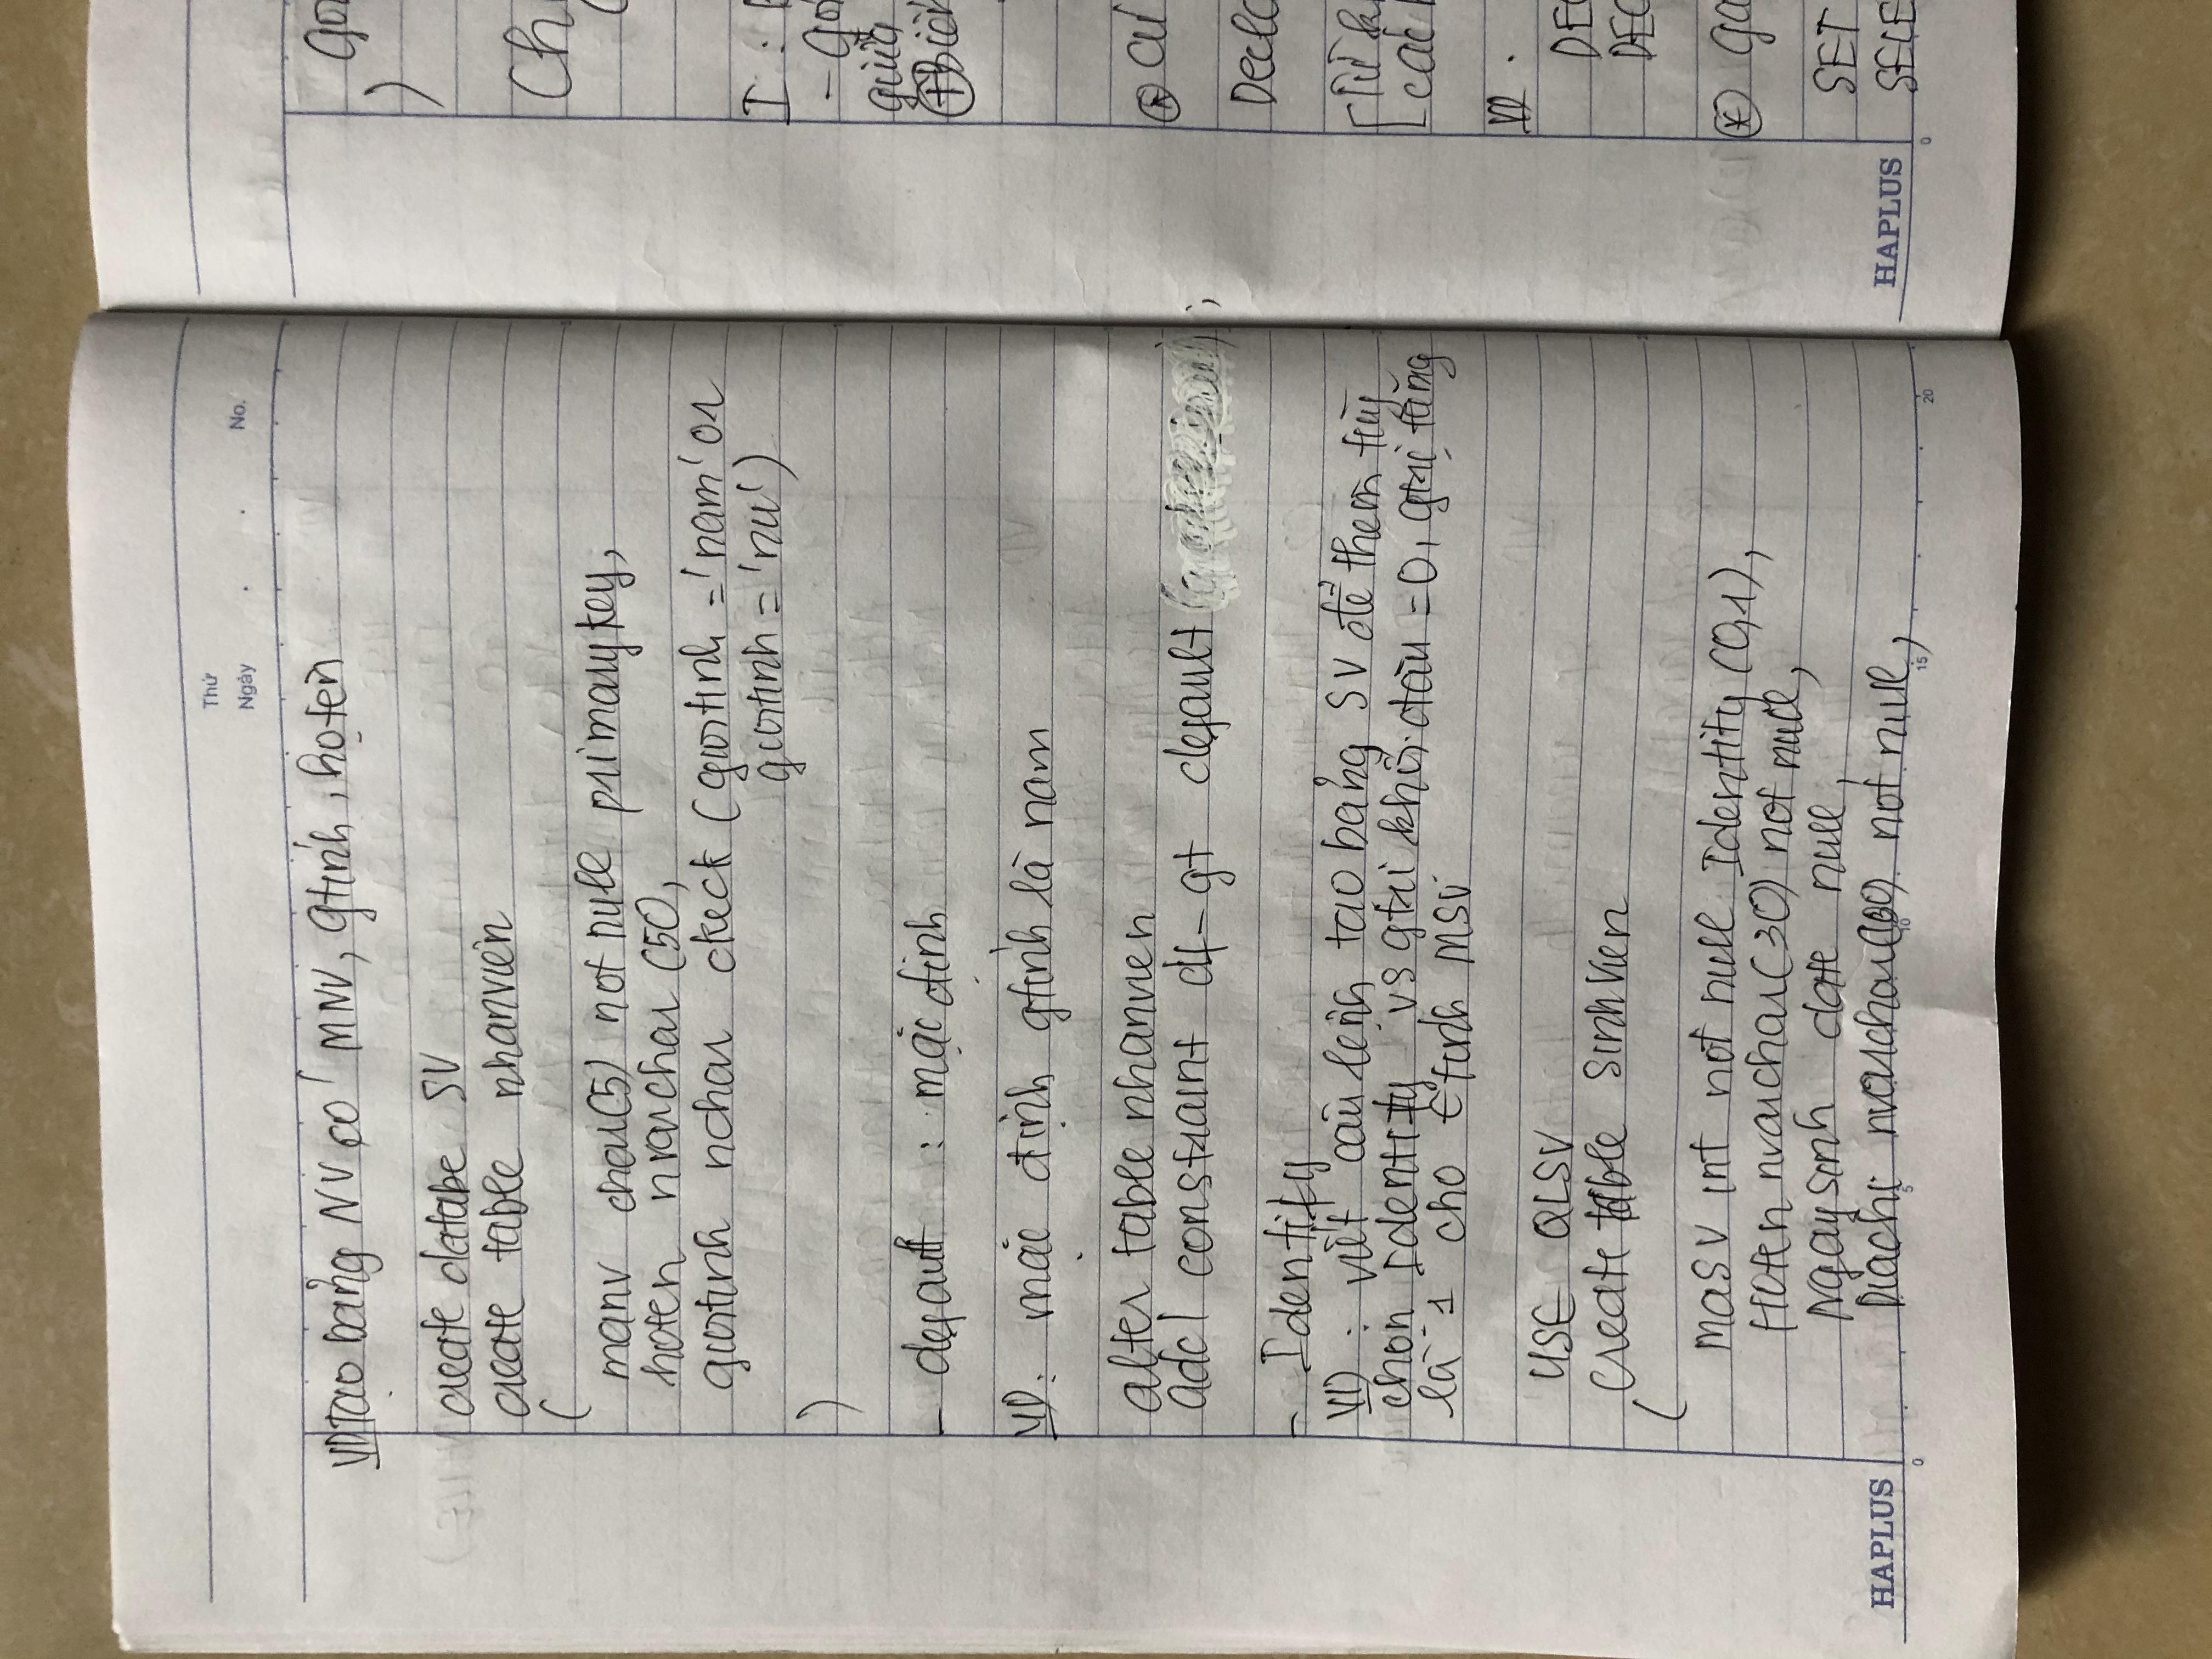 Thứ
Ngày . . No.
VD tạo bảng NV có MNV, gtính, họ tên
create databe SV
create table nhanvien
(
manv char(5) not null primary key,
hoten nvarchar (50,
gioitinh nchar check (gioitinh = 'nam' or
gioitinh = 'nu')
)
- default : mặc định
VD: mặc định gtính là nam
alter table nhanvien
add constraint df-gt default ;
- Identity
VD : viết câu lệnh tạo bảng SV để thêm tùy
chọn Identity vs gtrị khởi đầu = 0, gtrị tăng
là 1 cho tính MSV
USE QLSV
Create table Sinhvien
(
MaSV int not null Identity (0,1),
Hoten nvarchar(30) not null,
Ngaysinh date null,
Diachi nvarchar() not null,
HAPLUS
0 5 10 15 20
)
I :
giữa
Từ
các
SET
HAPLUS
0